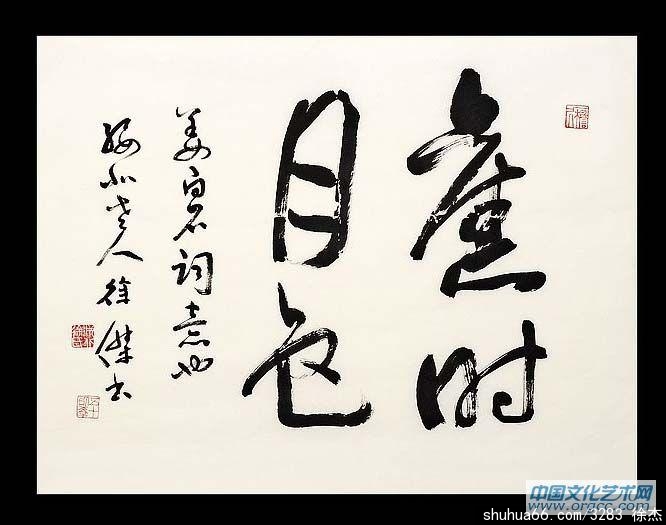 舊时
月色
姜白石词意也
老人徐傑书
中国文化艺术网
www.orgcc.com
shuhua66.com/3283 徐杰